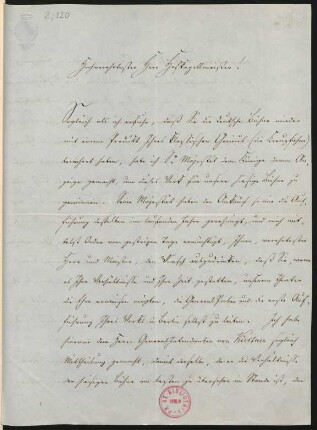 2,120
Hochverehrtester Herr Hofkapellmeister!
Sogleich als ich erfuhr, daß Sie die deutsche Bühne wieder
mit einem Produkt Ihres klassischen Genius (die Kreuzfahrer)
bereichert haben, habe ich Sr Majestät dem Könige davon An-
zeige gemacht, um dieses Werk für unsere hiesige Bühne zu
gewinnen. Seine Majestät haben den Ankauf so wie die Auf-
führung desselben im laufenden Jahre genehmigt, und mich mit-
telst Ordre vom gestrigen Tage ermächtigt, Ihnen, verehrtester
Herr und Meister, den Wunsch auszudrücken, daß Sie, wenn
es Ihre Verhältnisse und Ihre Zeit gestatten, unserem Theater
die Ehre erweisen möchten, die General-Proben und die erste Auf-
führung Ihres Werks in Berlin selbst zu leiten. Ich habe
hiervon dem Herrn General-Intendanten von Küstner zugleich
Mittheilung gemacht, damit derselbe, da er die Verhältnisse
der hiesigen Bühne am besten zu übersehen im Stande ist, den